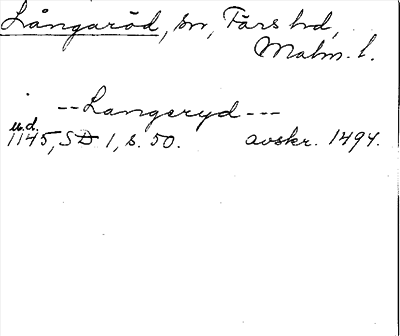 Långaröd, sn, Färs hd,
Malm. l.
-- Langeryd ---
u.d.
1145, SD 1, s. 50. avskr. 1494.